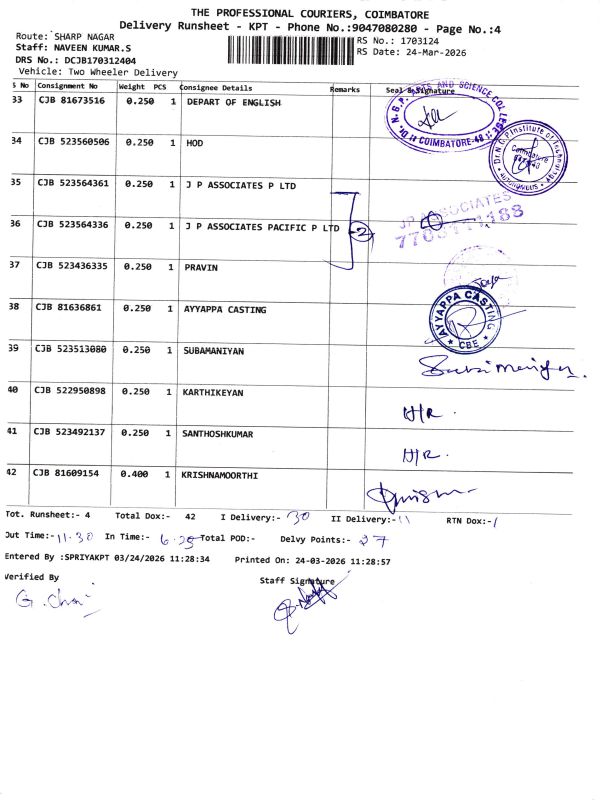 THE PROFESSIONAL COURIERS, COIMBATORE
Delivery Runsheet - KPT - Phone No.:9047080280 - Page No.:4
Route: SHARP NAGAR
RS No.: 1703124
Staff: NAVEEN KUMAR.S
RS Date: 24-Mar-2026
DRS No.: DCJB170312404
Vehicle: Two Wheeler Delivery
S No Consignment No Weight PCS Consignee Details Remarks Seal & Signature
33 CJB 81673516 0.250 1 DEPART OF ENGLISH
ARTS AND SCIENCE COLLEGE
COIMBATORE-48
34 CJB 523560506 0.250 1 HOD
Dr.N.G.P Institute of
Coimbatore
35 CJB 523564361 0.250 1 J P ASSOCIATES P LTD
JP ASSOCIATES
36 CJB 523564336 0.250 1 J P ASSOCIATES PACIFIC P LTD 2
37 CJB 523436335 0.250 1 PRAVIN
38 CJB 81636861 0.250 1 AYYAPPA CASTING
AYYAPPA CASTING
* CBE *
39 CJB 523513080 0.250 1 SUBAMANIYAN
40 CJB 522950898 0.250 1 KARTHIKEYAN
H/R.
41 CJB 523492137 0.250 1 SANTHOSHKUMAR
H/R.
42 CJB 81609154 0.400 1 KRISHNAMOORTHI
Tot. Runsheet:- 4 Total Dox:- 42 I Delivery:- 30 II Delivery:- 11 RTN Dox:- 1
Out Time:- 11.30 In Time:- Total POD:- Delvy Points:- 27
Entered By :SPRIYAKPT 03/24/2026 11:28:34 Printed On: 24-03-2026 11:28:57
Verified By
Staff Signature